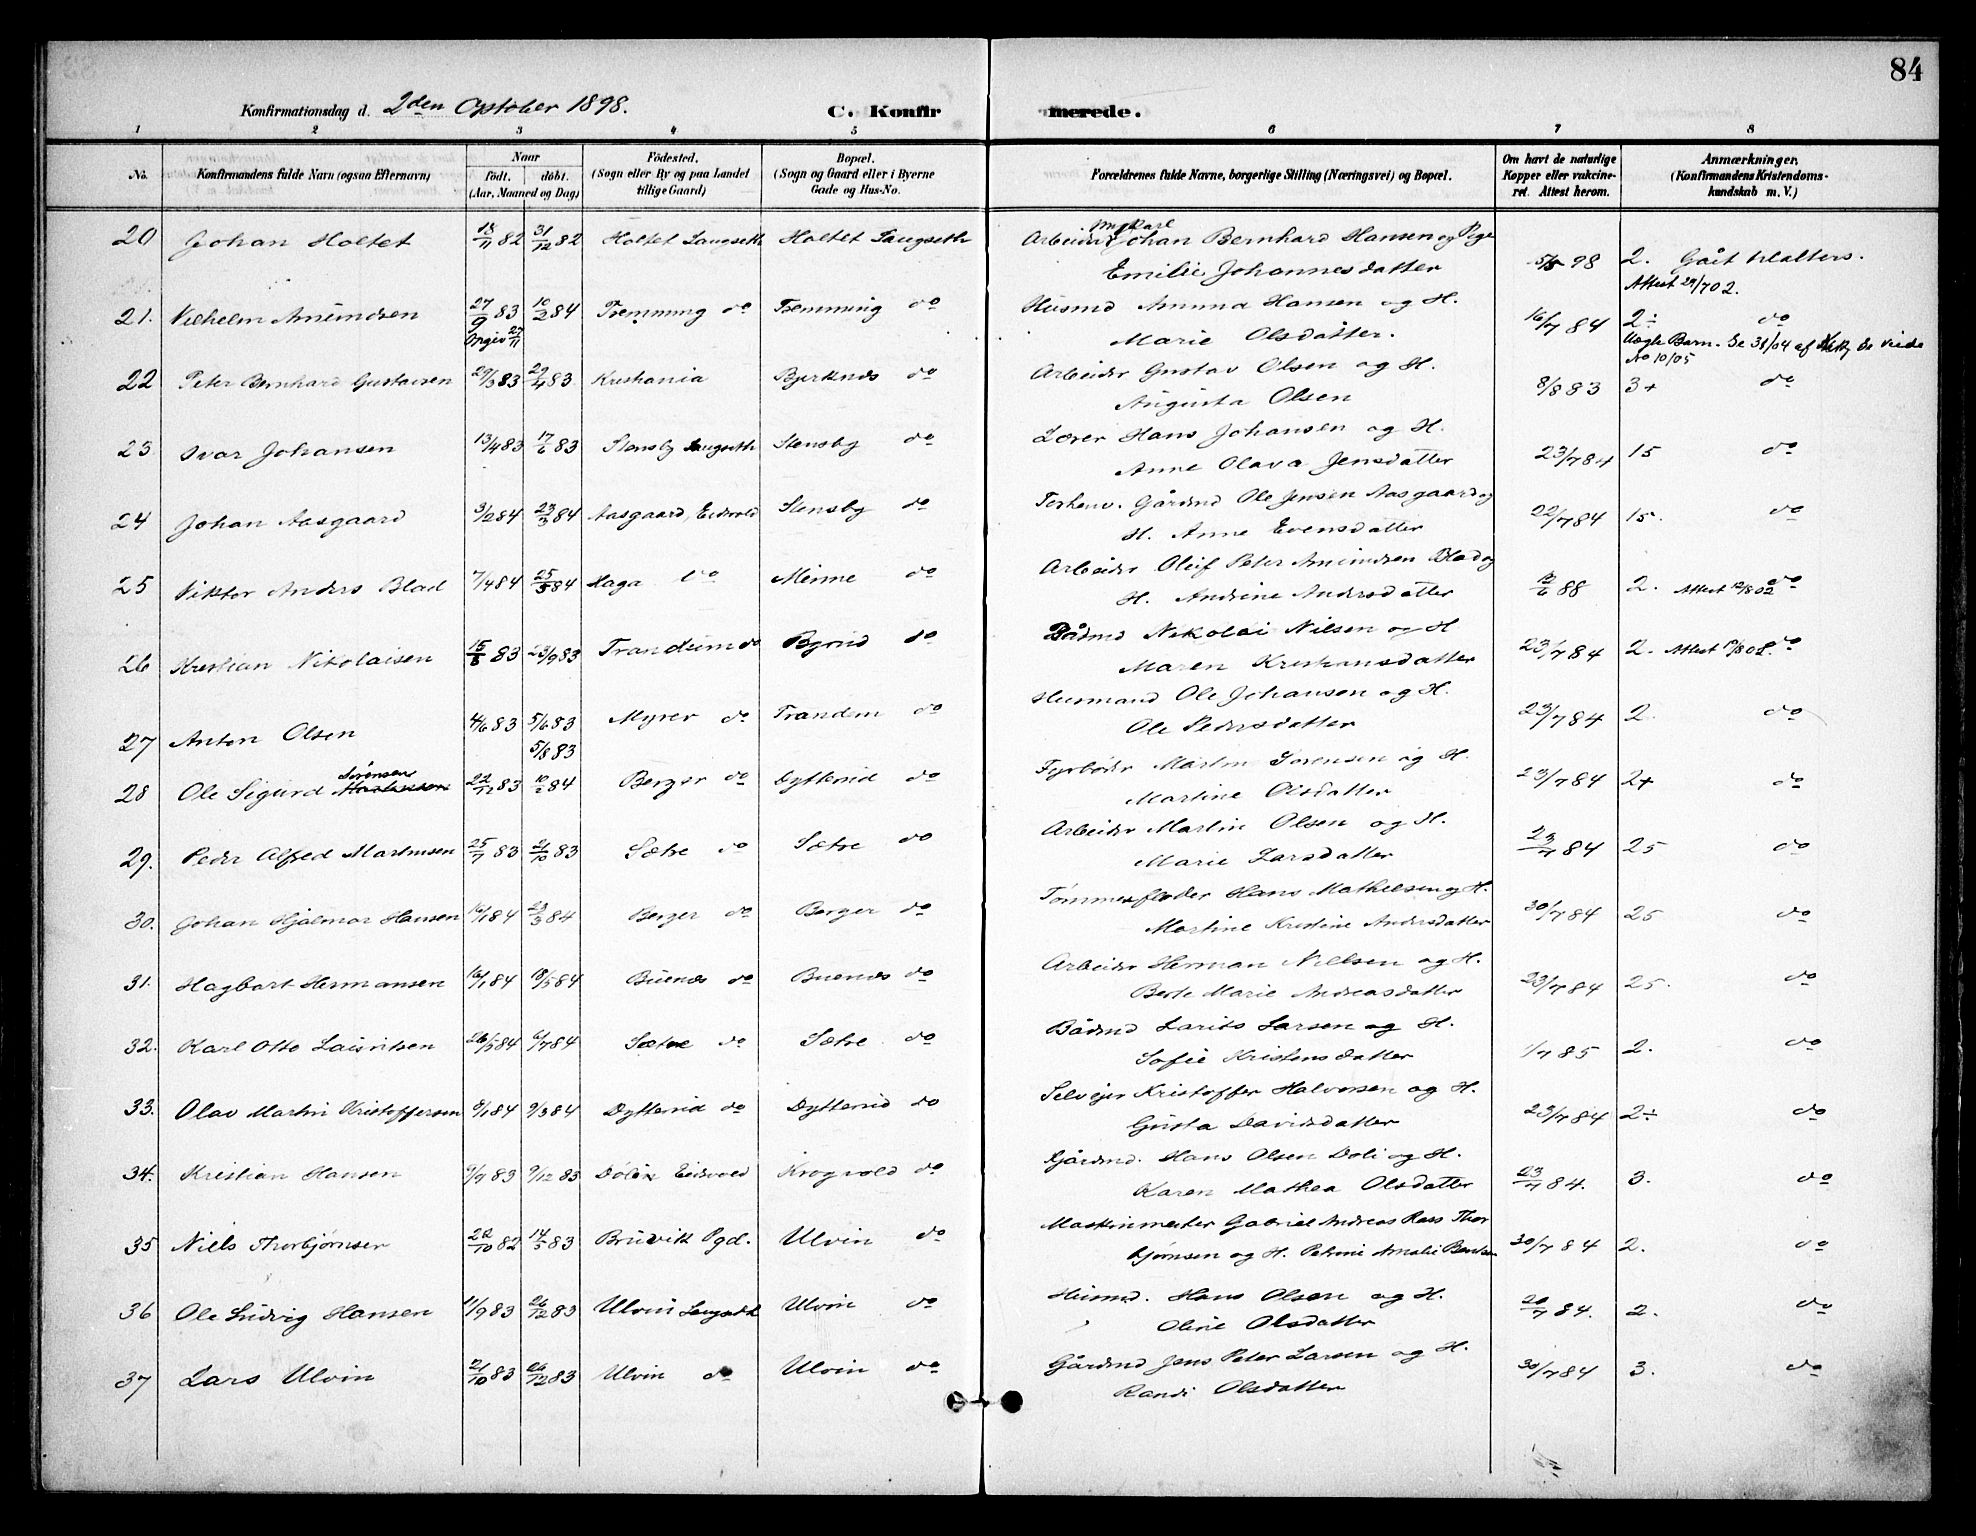 84
Konfirmationsdag d. 2den Oktober 1898. C. Konfirmerede.
1 2 3 4 5 6 7 8
No. Konfirmandens fulde Navn (ogsaa Efternavn) Naar født. døbt. (Aar, Maaned og Dag) Fødested. (Sogn eller By og paa Landet tillige Gaard) Bopæl. (Sogn og Gaard eller i Byerne Gade og Hus-No. Forældrenes fulde Navne, borgerlige Stilling (Næringsvei) og Bopæl. Om havt de naturlige Kopper eller vakcineret. Attest herom. Anmærkninger, (Konfirmandens Kristendomskundskab m. V.)
20 Johan Holtet 18/11 82 31/12 82 Holtet Langseth Holtet Langseth Arbeider Johan Bernhard Hansen og Pige
Emilie Johannesdatter 5/5 98 2. Gåit tilalters.
Attest 29/7 02.
21. Vilhelm Amundsen 27/9 83 10/2 84 Tremming do Tremming do Husmd Amund Hansen og H.
Opgiv 27/11 Marie Olsdatter. 16/7 84 2÷ do
Uægte Barn. Se 31/04 af
No 10/05
22 Peter Bernhard Gustavsen 29/3 83 29/4 83 Kristiania Bjerknes do Arbeider Gustav Olsen og H.
Augusta Olsen 8/8 83 3+ do
23 Ivar Johansen 13/4 83 17/6 83 Stensby Langseth Stensby do Lærer Hans Johansen og H.
Anne Olava Jensdatter 23/7 84 15 do
24 Johan Aasgaard 3/2 84 23/3 84 Aasgaard, Eidsvold Stensby do Forhenv. Gårdmd Ole Jensen Aasgaard og
H. Anne Evensdatter 22/7 84 15. do
25 Viktor Anders Blad 7/4 84 25/5 84 Haga do Minne do Arbeider Oluf Peter Amundsen Blad og
H. Andrine Andersdatter 12/6 88 2. Attest 12/8 02 do
26 Kristian Nikolaisen 15/8 83 23/9 83 Trandum do Byrud do Bådmd Nikolai Nilsen og H
Maren Kristiansdatter 23/7 84 2. Attest do
27 Anton Olsen 4/6 83 5/6 83 Myrer do Trandem do Husmand Ole Johansen og H.
5/8 83 Ole Pedersdatter 23/7 84 2. do
28 Ole Sigurd Sørensen 22/12 83 10/2 84 Berger do Dytterud do Fyrbøder Martin Sørensen og H.
Martine Olsdatter 23/7 84 2+ do
29. Peder Alfred Martinsen 25/7 83 21/10 83 Sætre do Sætre do Arbeider Martin Olsen og H.
Marie Larsdatter 23/7 84 25 do
30. Johan Hjalmar Hansen 16/1 84 23/3 84 Berger do Berger do Tømmerfløder Hans Mathiesen og H.
Martine Kristine Andersdatter 30/7 84 25 do
31. Hagbart Hermansen 16/1 84 18/5 84 Buenes do Buenes do Arbeider Herman Nilsen og H.
Berte Marie Andreasdatter 23/7 84 25. do
32. Karl Otto Lauritsen 26/5 84 6/7 84 Sætre do Sætre do Bådmd Larits Larsen og H.
Sofie Kristensdatter 1/7 85 2. do
33. Olav Martin Kristoffersen 8/1 84 9/3 84 Dytterud do Dytterud do Selveier Kristoffer Halvorsen og H.
Gusta Davidsdatter 23/7 84 2÷ do
34. Kristian Hansen 9/7 83 9/12 83 Dølin Eidsvold Krogvold do Gårdmd. Hans Olsen Doli og H.
Karen Mathea Olsdatter 23/7 84. 3. do
35 Niels Thorbjørnsen 22/10 82 14/5 83 Bruvik Pgd. Ulvin do Maskinmester Gabriel Andreas Ross Thor
bjørnsen og H. Petrine Amalie Bendsen 30/7 84 2. do
36 Ole Ludvig Hansen 11/9 83 26/12 83 Ulvin Langseth Ulvin do Husmd. Hans Olsen og H.
Oline Olsdatter 20/7 84. 2. do
37 Lars Ulvin 21/10 83 26/12 83 Ulvin do Ulvin do Gårdmd Jens Peter Larsen og H.
Randi Olsdatter 30/7 84 3. do